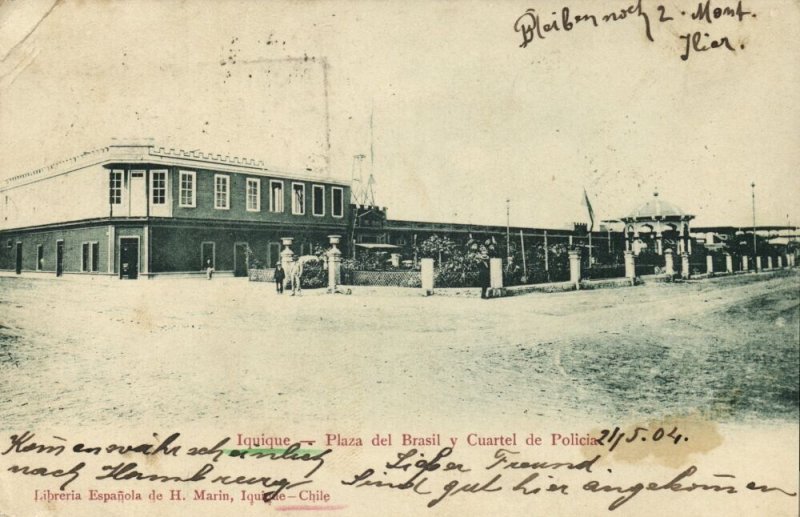 Bleiben noch 2. Mont.
Hier.
Iquique — Plaza del Brasil y Cuartel de Policia
21/5.04.
Komen wahrscheinlich
nach Hamburg
Liber Freund
Sind gut hier angekomen
Librería Española de H. Marin, Iquique – Chile